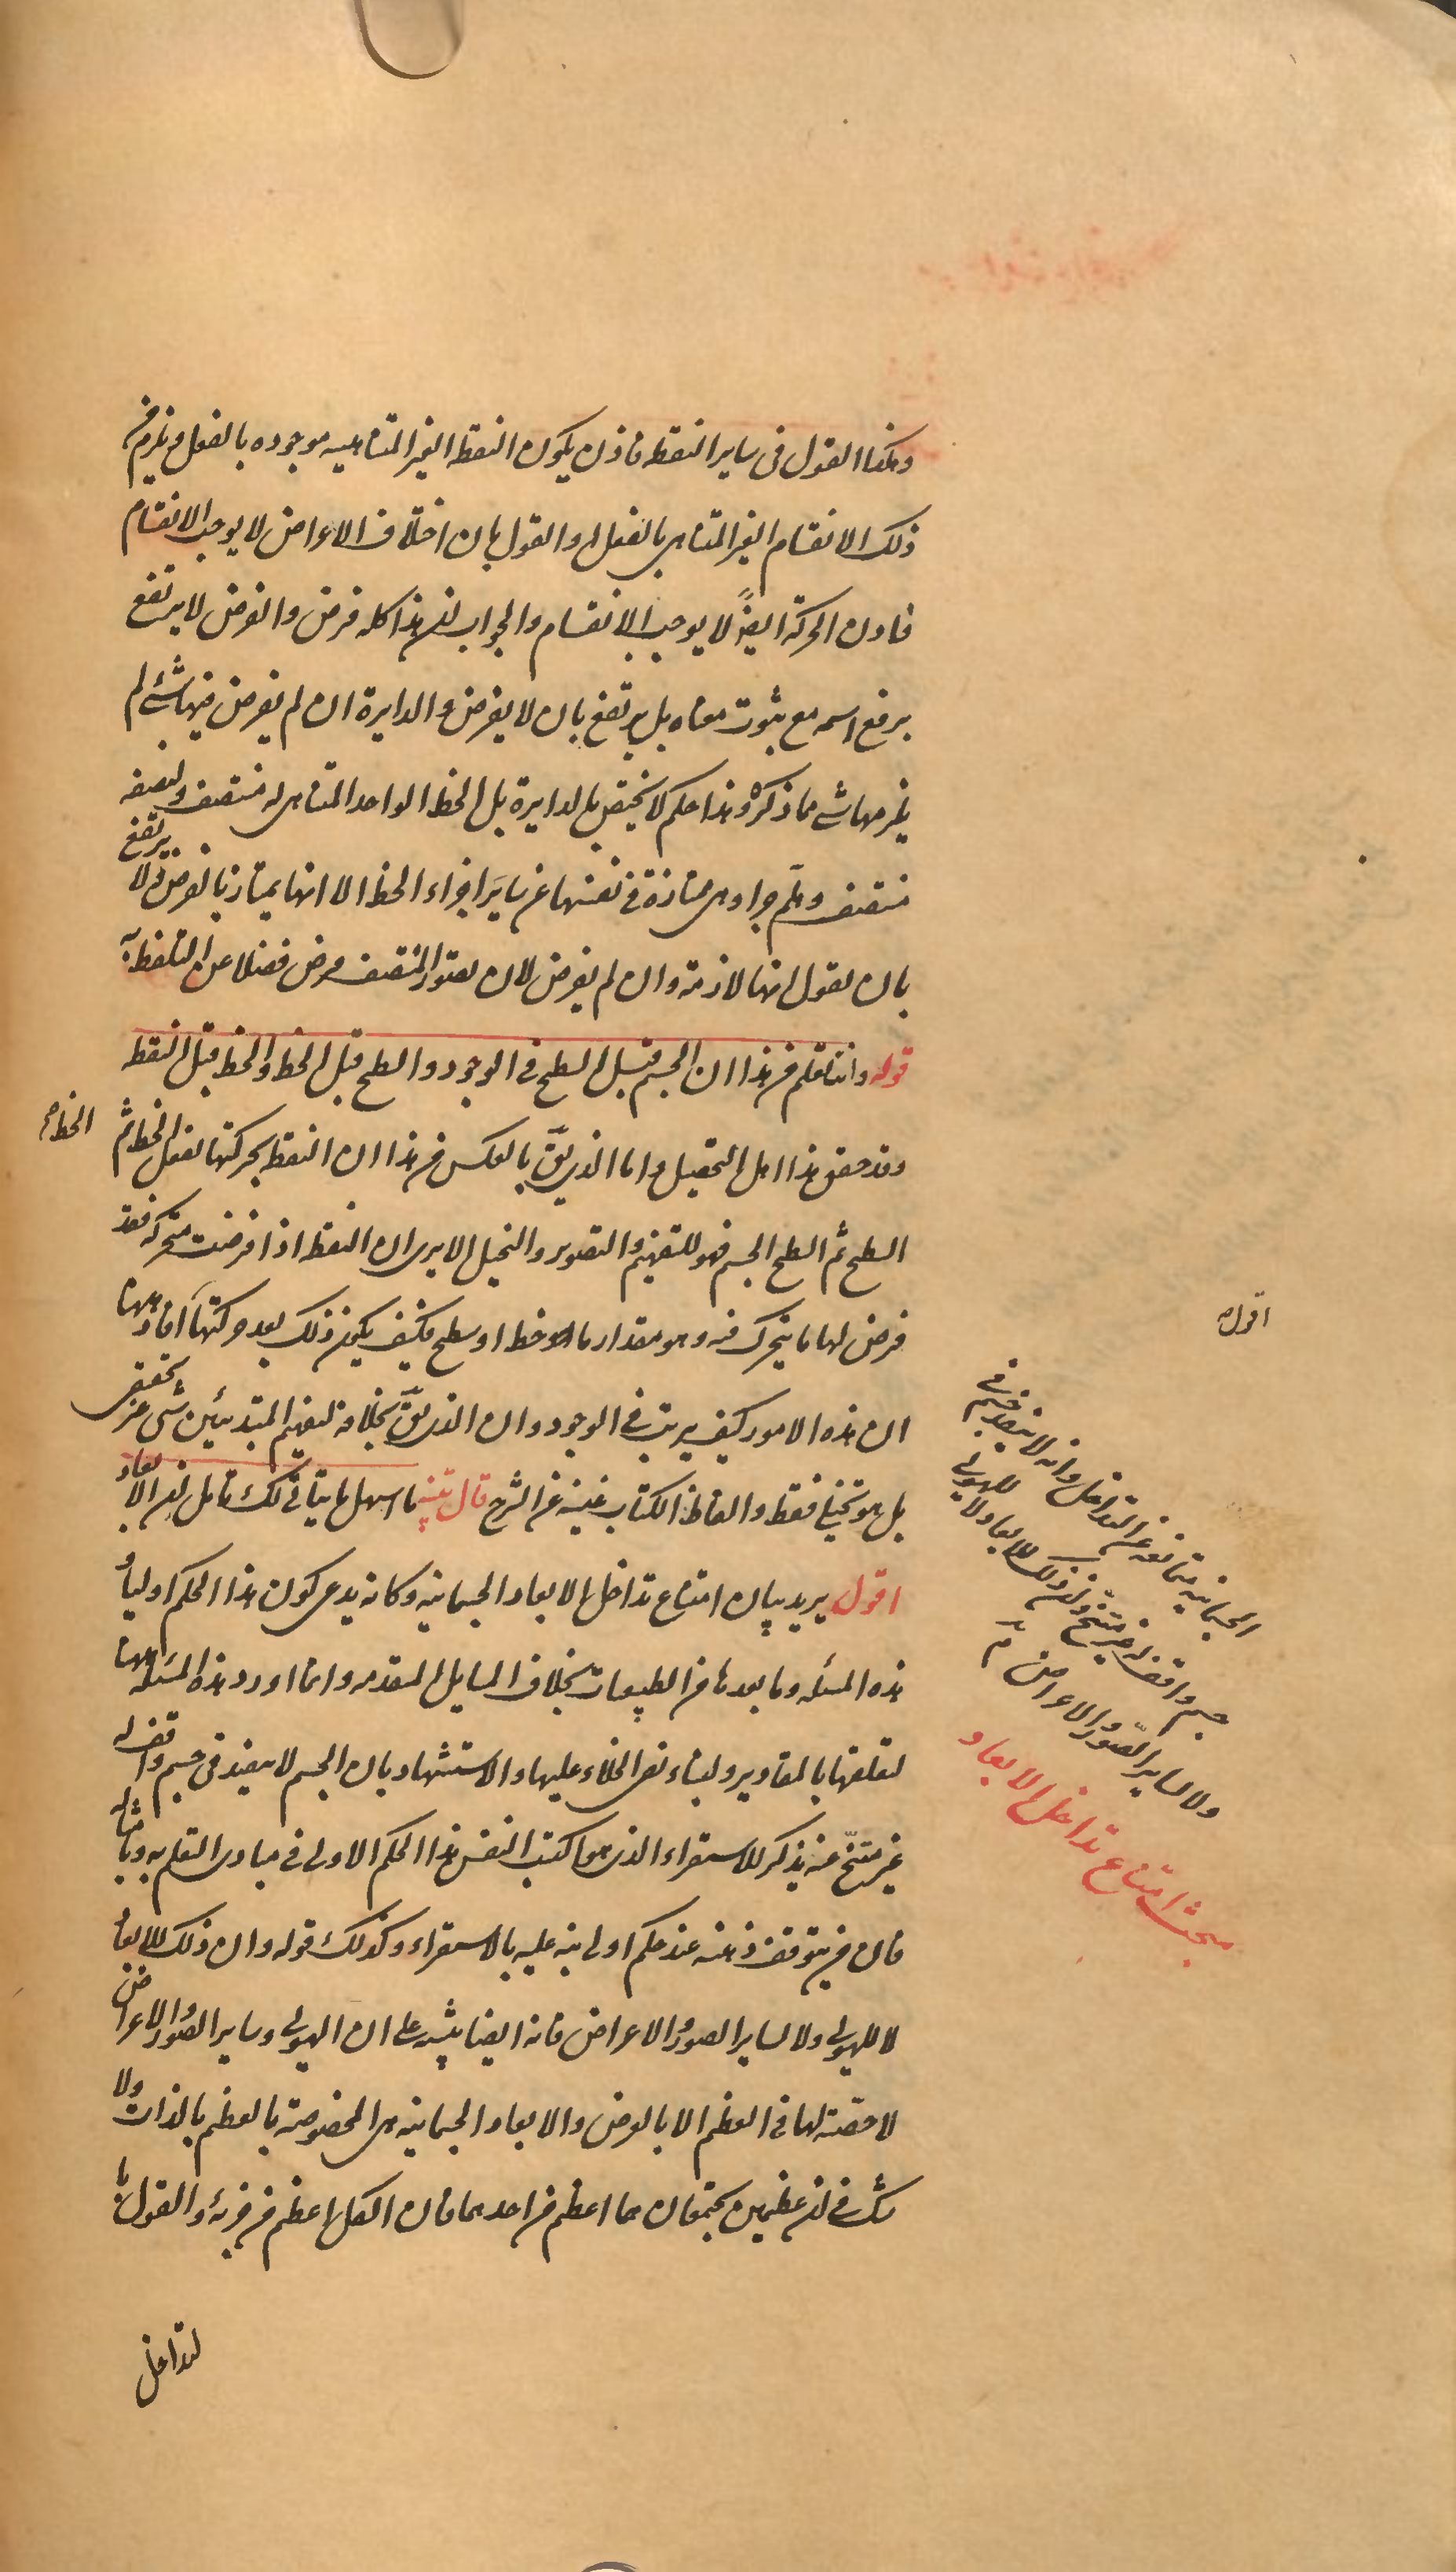 وهكذا القول فى ساير النقط فاذن يكون النقط الغير المتناهيه موجوده بالفعل ويلزم من
ذلك الانقسام الغير المتناهى بالفعل والقول بان اختلاف الاعراض لا يوجب الانقسام
فاذن الحركة ايضاً لا يوجب الانقسام والجواب ان هذا كله فرض والفرض لا يرتفع
برفع اسمه مع ثبوت معناه بل يرتفع بان لا يفرض والدايرة ان لم يفرض فيها شئ لم
يلزمها شى مما ذكره وهذا حكم لا يختص بالدايرة بل الخط الواحد المتناهى له منتصف ولنصفه
منتصف وهلم جرا وهى ممتازة فى نفسها عن ساير اجزاء الخط الا انها يمتاز بالفرض ولا يرتفع
بان يقول انها لازمة وان لم يفرض لان تصور المنتصف فرض فضلا عن التلفظ به
قوله وانت تعلم من هذا ان الجسم قبل السطح فى الوجود والسطح قبل الخط والخط قبل النقط
وقد حقق هذا اهل التحصيل واما الذى يق بالعكس من هذا ان النقط بحركتها تفعل الخط ثم
الخط صح
السطح ثم السطح الجسم فهو للتفهيم والتصوير والتخيل الا يرى ان النقط اذا فرضت متحركه فقد
فرض لها ما يتحرك فيه وهو مقدار ما خط او سطح فكيف يكون ذلك بعد حركتها افاد هيهنا
ان هذه الامور كيف يرتب فى الوجود وان الذى يق بخلافه لتفهيم المبتدئين شى غير تحقيقى
بل هو تخيلى فقط والفاظ الكتاب غنيه عن الشرح قال تنبيه ما اسهل ما يتأتى لك تامل ان الابعاد
اقول يريد بيان امتناع تداخل الابعاد الجسمانيه وكانه يدعى كون هذا الحكم اوليا و
هذه المسئله وما بعدها من الطبيعات بخلاف المسايل المتقدمه وانما اورد هذه المسئله هيهنا
لتعلقها بالمقادير ولبناء نفى الخلاء عليها والاستشهاد بان الجسم لا ينفذ فى جسم واقف له
غير متنح عنه يذكر للاستقراء الذى هو اكتسب النفس هذا الحكم الاولى فى مبادى التعلم به وبامثاله
فان من يتوقف ذهنه عند حكم اولى ينبه عليه بالاستقراء وكذلك قوله وان ذلك للابعاد
لا للهيولى ولا لساير الصور والاعراض فانه ايضا ينبيه على ان الهيولى وساير الصور والاعراض
لا حصة لها فى العظم الا بالعرض والابعاد الجسمانيه هى المخصوصة بالعظم بالذات ولا
شك فى ان عظيمين يجتمعان هما اعظم من احدهما فان الكل اعظم من جزئه والقول با
لتداخل
اقوله
الجسمانيه متمانعه عن التداخل وانه لا ينفذ جسم فى
جسم واقف له غير متنح وان ذلك للابعاد لا للهيولى
ولا لساير الصور والاعراض
مبحث امتناع تداخل الابعاد